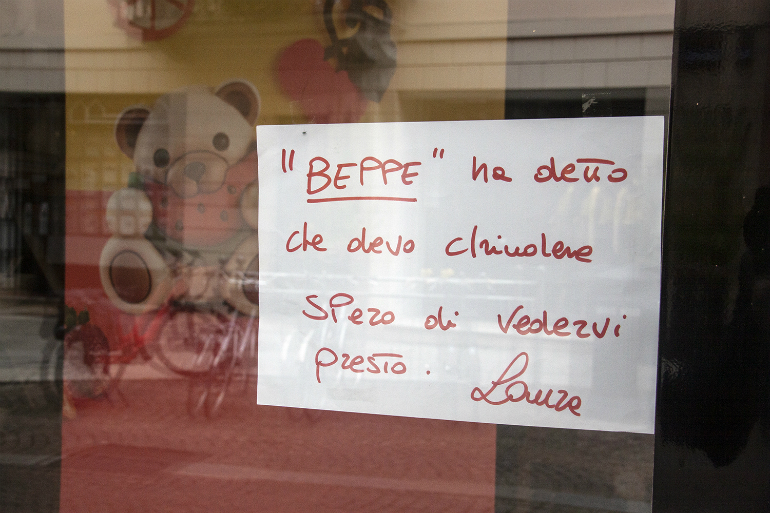 "BEPPE" ha detto
che devo chiudere
spero di vedervi
presto. Laura